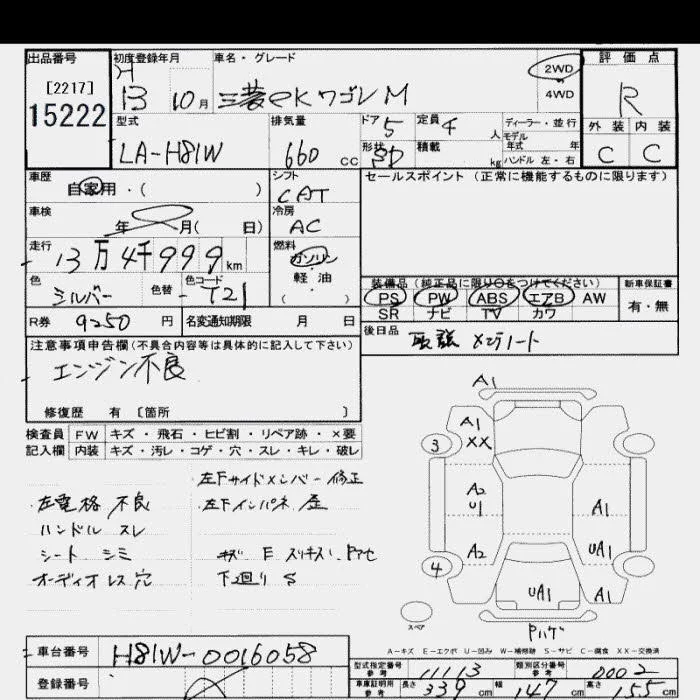 出品番号
[2217]
15222
初度登録年月
H
13 10月
車名・グレード
三菱 eKワゴン M
2WD
4WD
評価点
R
外装 内装
C C
型式
LA-H81W
排気量
660 CC
ドア 5
形状 5D
定員 4 人
積載 kg
ディーラー・並行
モデル
年式 年
ハンドル 左・右
車歴
自家用・( )
シフト
CAT
セールスポイント (正常に機能するものに限ります)
車検
年 月( 日)
冷房
AC
走行
13万4千999km
燃料
ガソリン
軽油
( )
色
シルバー
色替
色コード
T21
装備品 (純正品に限り○をつけてください)
PS PW ABS エアB AW
SR ナビ TV カワ
新車保証書
有・無
R券 9250 円
名変通知期限 月 日
後日品
取説 メンテノート
注意事項申告欄(不具合内容等は具体的に記入して下さい)
エンジン不良
修復歴 有 〔箇所 〕
検査員 FW キズ・飛石・ヒビ割・リペア跡・×要
記入欄 内装 キズ・汚レ・コゲ・穴・スレ・キレ・破レ
左下サイドメンバー 修正
左電格 不良
左下インパネ 歪
ハンドル スレ
シート シミ
オーディオレス穴
下廻り S
A1
A1
XX
3
A2
U1
A1
A2
UA1
4
UA1
A1
スペア
Pハゲ
A-キズ E-エクボ U-凹み W-補修跡 S-サビ C-腐食 XX-交換済
車台番号 H81W-0016058
登録番号
型式指定番号
参考
11113
類別区分番号
参考
0002
車庫証明用
参考
長さ 339 cm 幅 147 cm 高さ 155 cm